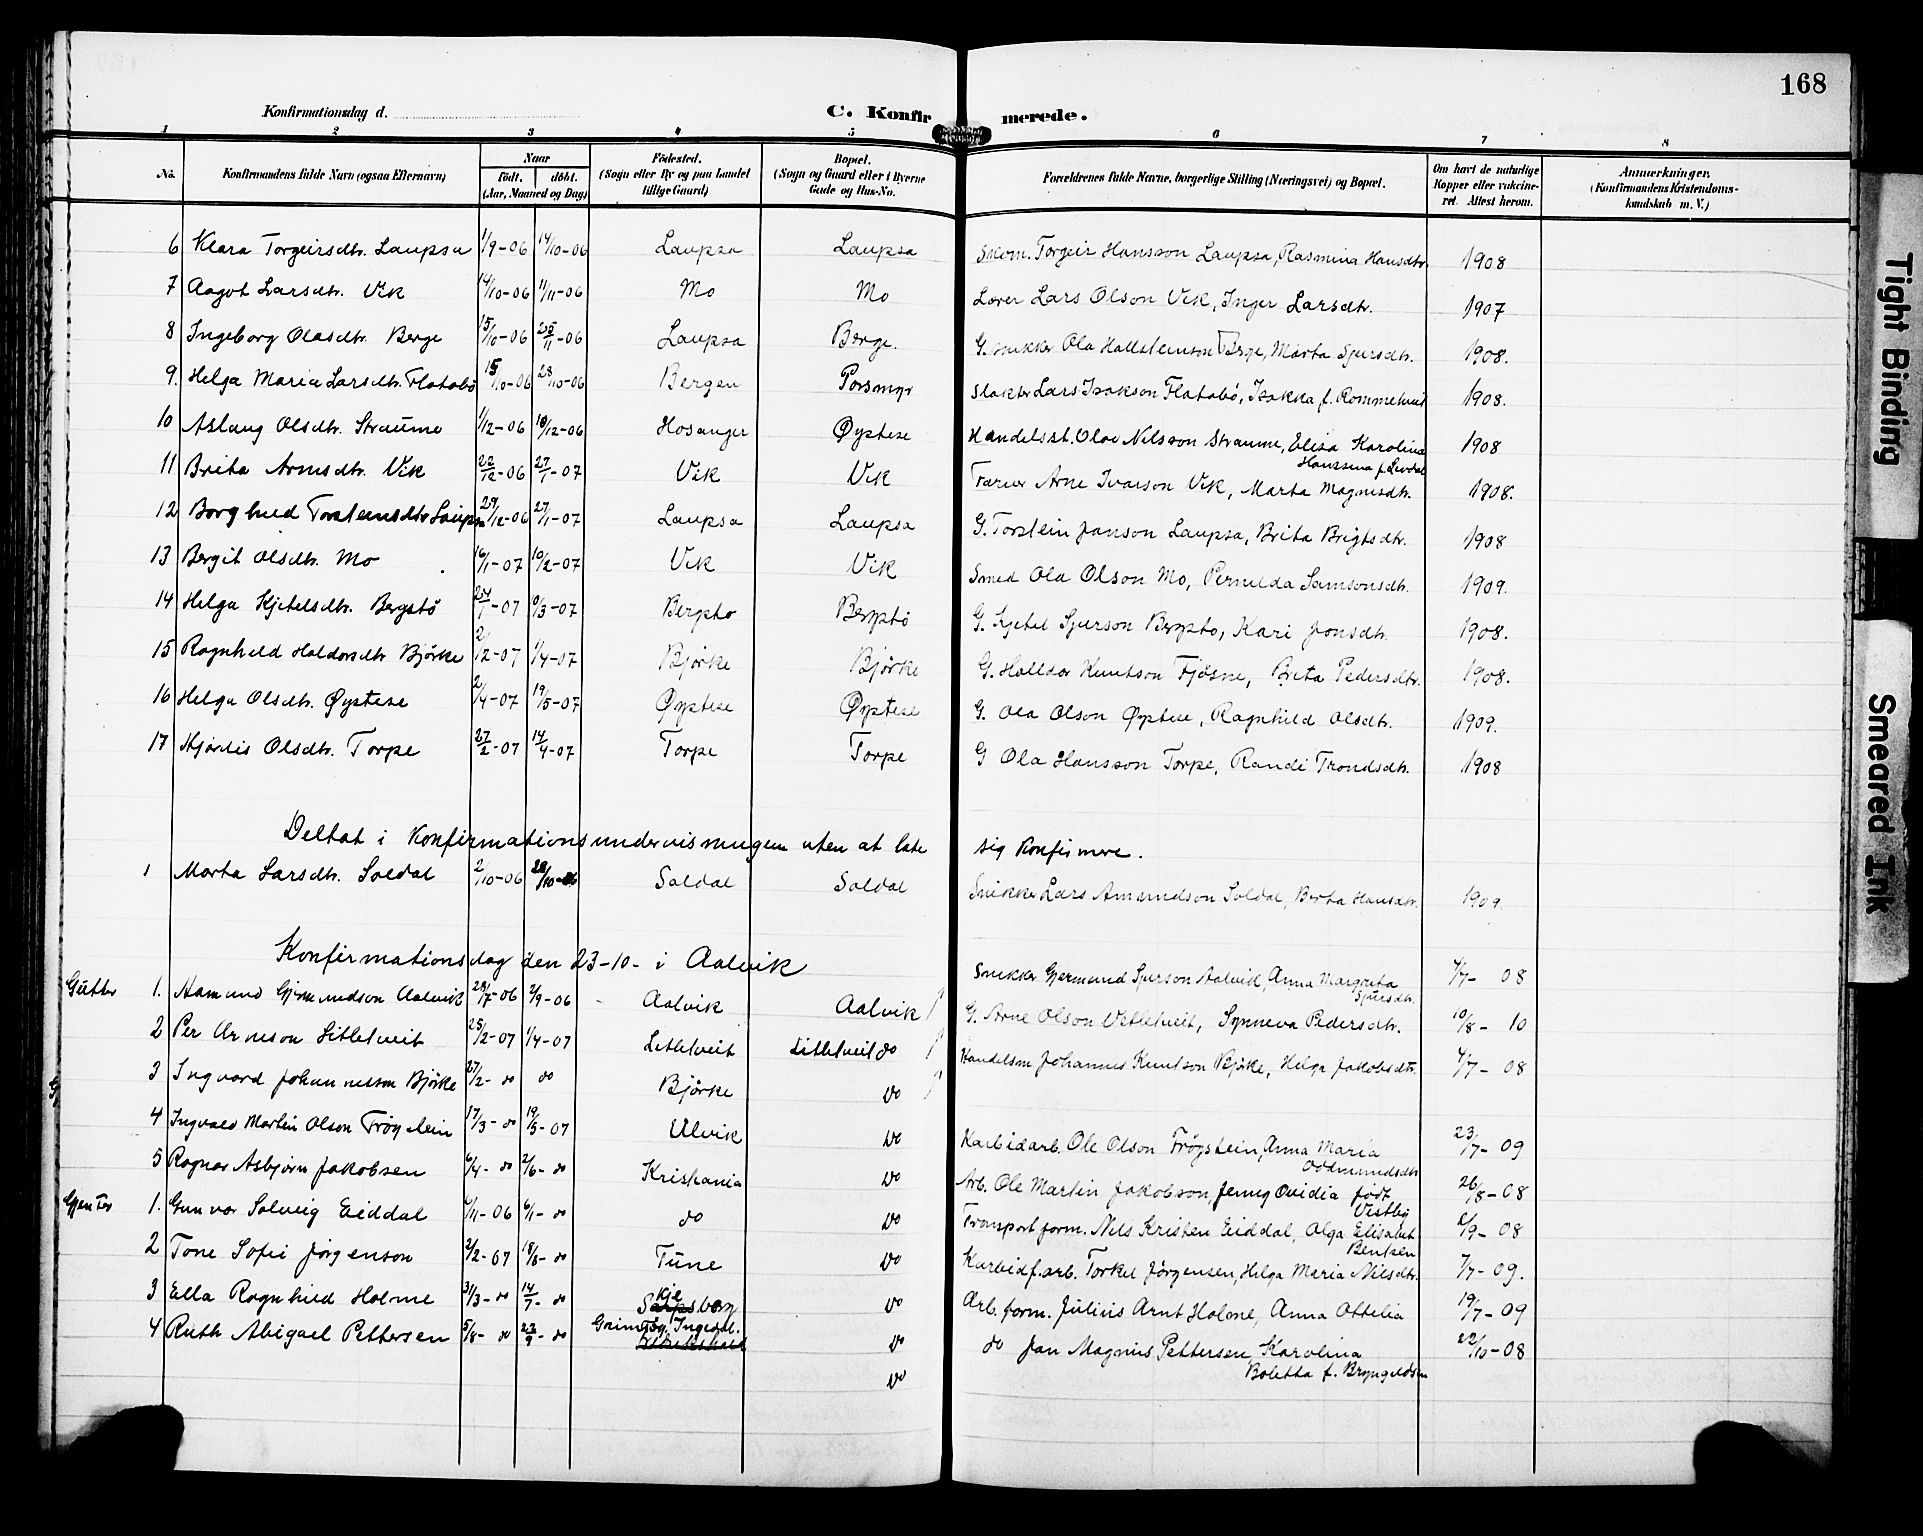 168
Konfirmationsdag d.
C. Konfirmerede.
1 2 3 4 5 6 7 8
No. Konfirmandens fulde Navn (ogsaa Efternavn) Naar Födt. döbt. (Aar, Maaned og Dag) Födested. (Sogn eller By og paa Landet tillige Gaard) Bopæl. (Sogn og Gaard eller i Byerne Gade og Hus-No. Forældrenes fulde Navne, borgerlige Stilling (Næringsvei) og Bopæl. Om havt de naturlige Kopper eller vaccineret. Attest herom. Anmærkninger. (Konfirmandens Kristendomskundskab m. V.)
6 Klara Torgeirsdtr. Laupsa 1/9-06 14/10-06 Laupsa Laupsa Skom. Torgeir Hansson Laupsa, Rasmina Hansdtr. 1908
7 Aagot Larsdtr. Vik 14/10-06 11/11-06 Mo Mo Lærer Lars Olson Vik, Inger Larsdtr. 1907
8 Ingeborg Olasdtr. Berge 15/10-06 25/11-06 Laupsa Berge. G. snikker Ola Hallsteinson Berge, Marta Sjursdtr. 1908.
9. Helga Maria Larsdtr. Flatabö 15/10-06 28/10-06 Bergen Porsmyr Slakter Lars Isakson Flatabö, Isakka f. Rommetveit 1908.
10 Aslaug Olsdtr. Straume 1/12-06 18/12-06 Hosanger Øystese Handelsst. Olav Nilsson Straume, Elisa Karolina
Hanssina f. 1908
11 Brita Arnesdtr. Vik 22/12-06 27/1-07 Vik Vik Farver Arne Ivarson Vik, Marta Magnesdtr. 1908.
12 Borghild Torsteinsdtr Laupsa 29/12-06 27/1-07 Laupsa Laupsa G. Torstein Janson Laupsa, Brita Brigtsdtr. 1908
13 Bergit Olsdtr. Mo 16/1-07 10/2-07 Vik Vik Smed Ola Olson Mo, Pernilda Samsonsdtr. 1909.
14 Helga Kjetelsdtr. Bergstö 24/1-07 10/3-07 Bergstö Bergstö G. Kjetel Sjurson Bergstö, Kari Jonsdtr. 1908.
15 Ragnhild Haldorsdtr Bjørke 2/2-07 1/4-07 Bjørke Bjørke G. Halldor Knutson Fjösne, Brita Pedersdtr. 1908.
16 Helga Olsdtr. Øystese 2/4-07 19/5-07 Øystese Øystese G. Ola Olson Øystese, Ragnhild Olsdtr. 1909.
17 Hjørdis Olsdtr. Torpe 27/2-07 14/4-07 Torpe Torpe G Ola Hansson Torpe, Randi Trondsdtr. 1908
Deltat i Konfirmationsundervisningen uten at late sig Konfirmere.
1 Marta Larsdtr. Soldal 2/10-06 28/10-06 Soldal Soldal Snikker Lars Amundson Soldal, Berta Hansdtr. 1909.
Konfirmationsdag den 23-10- i Aalvik
Gutter 1. Aamund Gjermundson Aalvik 28/7-06 2/9-06 Aalvik Aalvik Snikker Gjermund Sjurson Aalvik, Anna Margreta
Sjursdtr. 4/7- 08
2 Per Arneson Litletveit 25/2-07 1/4-07 Litletveit Litletveit do G. Arne Olson Vetletveit, Synneva Pedersdtr. 10/8- 10
3 Ingvard Johannesson Bjørke 27/2- do do Bjørke do Handelsm Johannes Knutson Bjørke, Helga Jakobsdtr. 4/7- 08
4 Ingvald Martin Olson Frøystein 17/3- do 19/5-07 Ulvik do Karbidarb. Ole Olson Frøystein, Anna Maria
Oddmundsdtr 23/7- 09
5 Ragnar Asbjørn Jakobsen 6/4- do 2/6- do Kristiania do Arb. Ole Martin Jakobson, Jenny Ovidia født
Vestby 26/8-08
Gjenter 1. Gunvor Solveig Eiddal 6/11-06 6/1- do do do Transportform. Nils Kristen Eiddal, Olga Elisabet
Bentsen 2/9- 08
2 Tone Sofie Jørgenson 2/2-07 18/8- do Tune do Karbidf.arb. Torkel Jørgensen, Helga Maria Nilsdtr. 7/7-09.
3 Ella Ragnhild Holme 31/3- do 14/7- do Skjeberg do Arb. form. Julius Arnt Holme, Anna Ottelia 19/7-09
4 Ruth Abigael Pettersen 5/8- do 22/9- do Ingedal. do do Jan Magnus Pettersen, Karolina
Boletta f. Bryngeldsen 22/10-08
do
Tight Binding
Smeared Ink